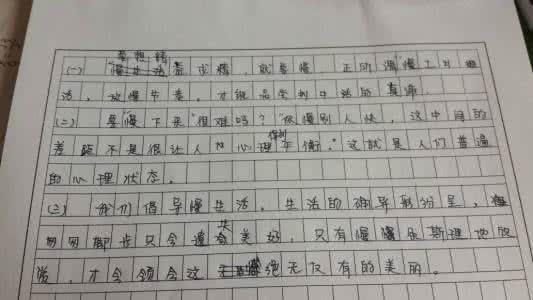 要想精
(一) 慢生活 成 , 就要慢。正所谓慢工出细
活，放慢节奏，才能品尝到生活的真谛。
(二) 要慢下来"很难吗？""你慢别人快，这中间的
得到
差距不是很让人 心理平衡。"这就是人们普遍
的心理状态。
(三) 我们倡导慢生活。生活的 异彩纷呈，
失
匆匆脚步只会遗 美好，只有慢慢 斯理地
，才会领会这 绝无仅有的美丽。